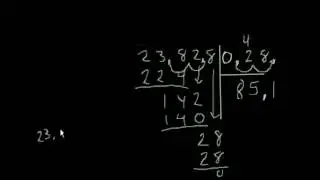 4
23,82,8 0,28,
224 85,1
142
140
28
28
0
23.